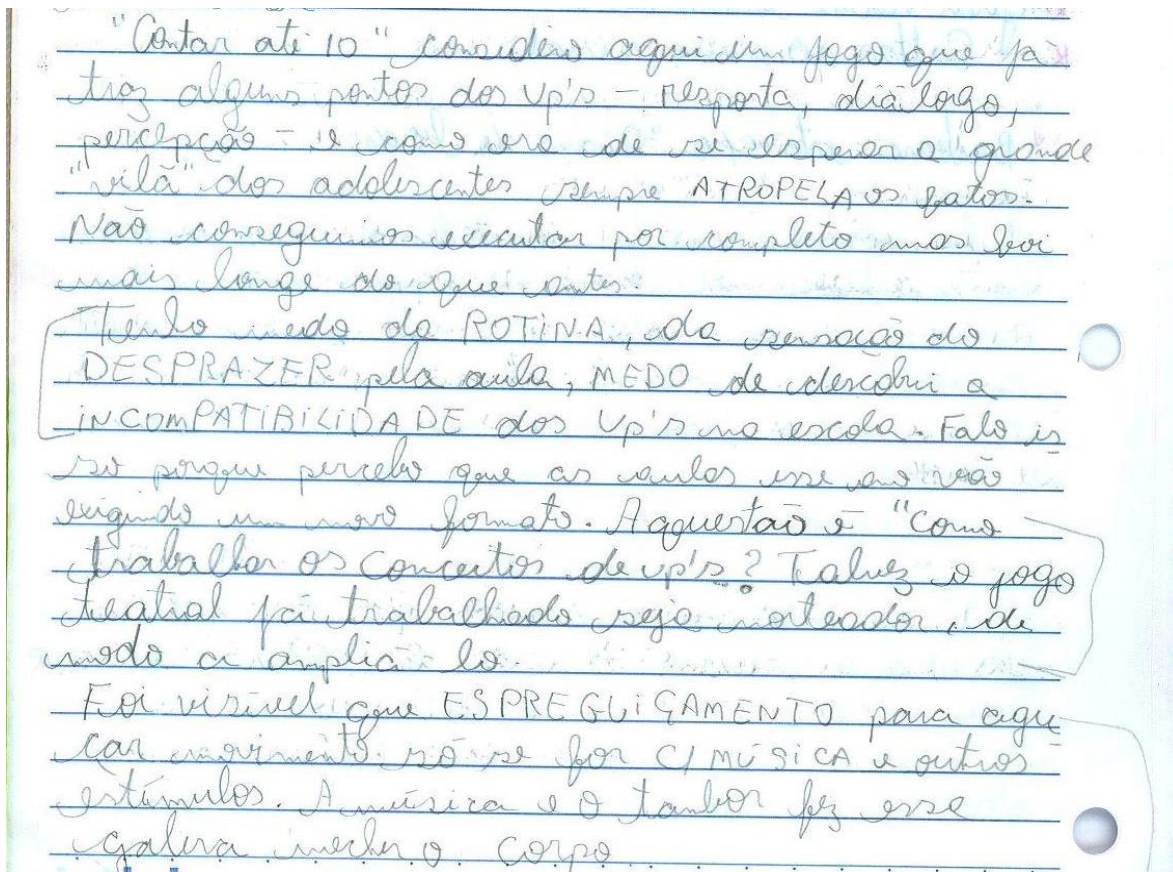 "Contar até 10" considero aqui um jogo que já
traz alguns pontos dos Vp's – resposta, diálogo,
percepção – e como era de se esperar a grande
"vilã" dos adolescentes sempre ATROPELA os fatos.
Não conseguimos executar por completo mas foi
mais longe do que antes.
Tenho medo da ROTINA, da sensação do
DESPRAZER pela aula, MEDO de descobri a
INCOMPATIBILIDADE dos Vp's na escola. Falo is
so porque percebo que as aulas esse ano vão
exigindo um novo formato. A questão é "Como
trabalhar os conceitos de vp's? Talvez o jogo
teatral já trabalhado seja norteador, de
modo a ampliá-lo.
Foi visível que ESPREGUIÇAMENTO para agu
çar movimento só se for C/ MÚSICA e outros
estímulos. A música e o tambor fez essa
galera mecher o corpo